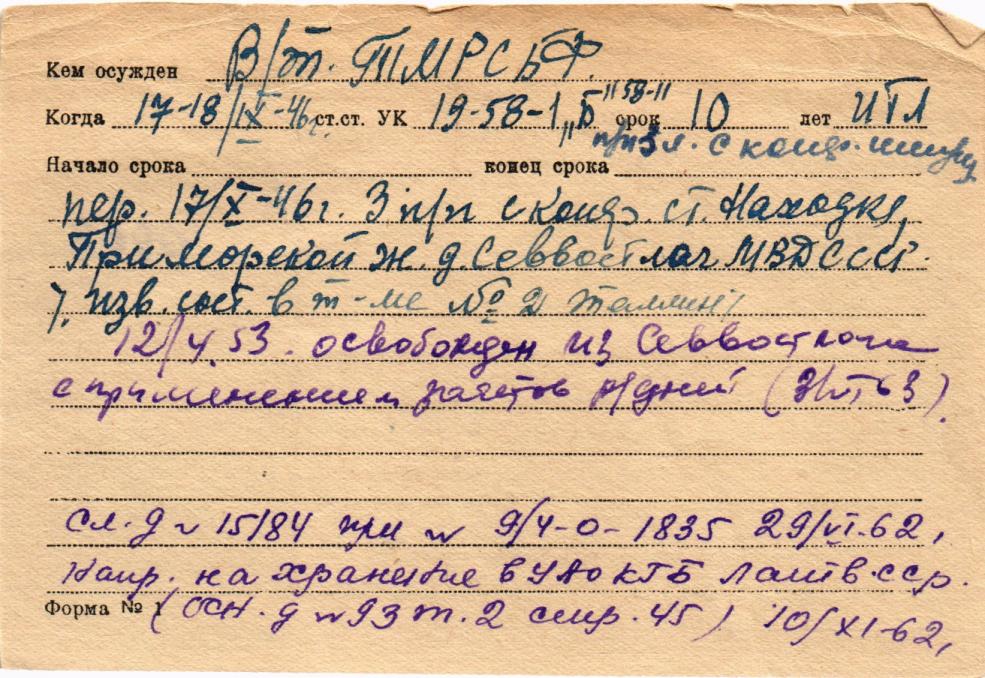 Кем осужден В/т. ТМРСБФ.
Когда 17-18/IX-46г. ст.ст. УК 19-58-1 "Б" "58-11" срок 10 лет ИТЛ
п/п 3 л. с конф. имущ.
Начало срока конец срока
пер. 17/X-46г. 3 п/п с конф. ст. Находка,
Приморской ж.д. Севвостлаг МВД СССР.
изв. сост. в т-ме № 2 Таллин/
12/V.53. освобожден из Севвостлага
с применением зачетов р/дней (3/VI 63).
сл. д № 15184 при № 9/4-0-1835 29/VI-62,
Напр. на хранение в УАО КГБ Латв.ССР.
Форма № 1 (осн. д № 93 т. 2 стр. 45) 10/XI-62,